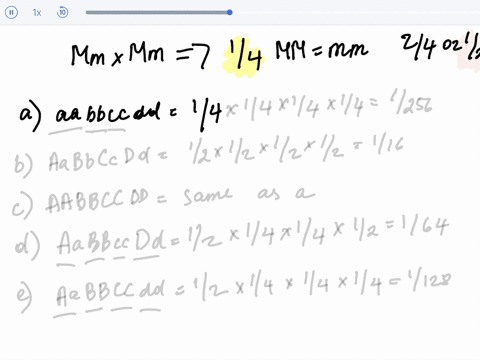 1x
Mm x Mm => 1/4 MM = mm 2/4 or 1/2
a) aabbccdd = 1/4 x 1/4 x 1/4 x 1/4 = 1/256
b) AaBbCcDd = 1/2 x 1/2 x 1/2 x 1/2 = 1/16
c) AABBCCDD = same as a
d) AaBBccDd = 1/2 x 1/4 x 1/4 x 1/2 = 1/64
e) AaBBCCdd = 1/2 x 1/4 x 1/4 x 1/4 = 1/128